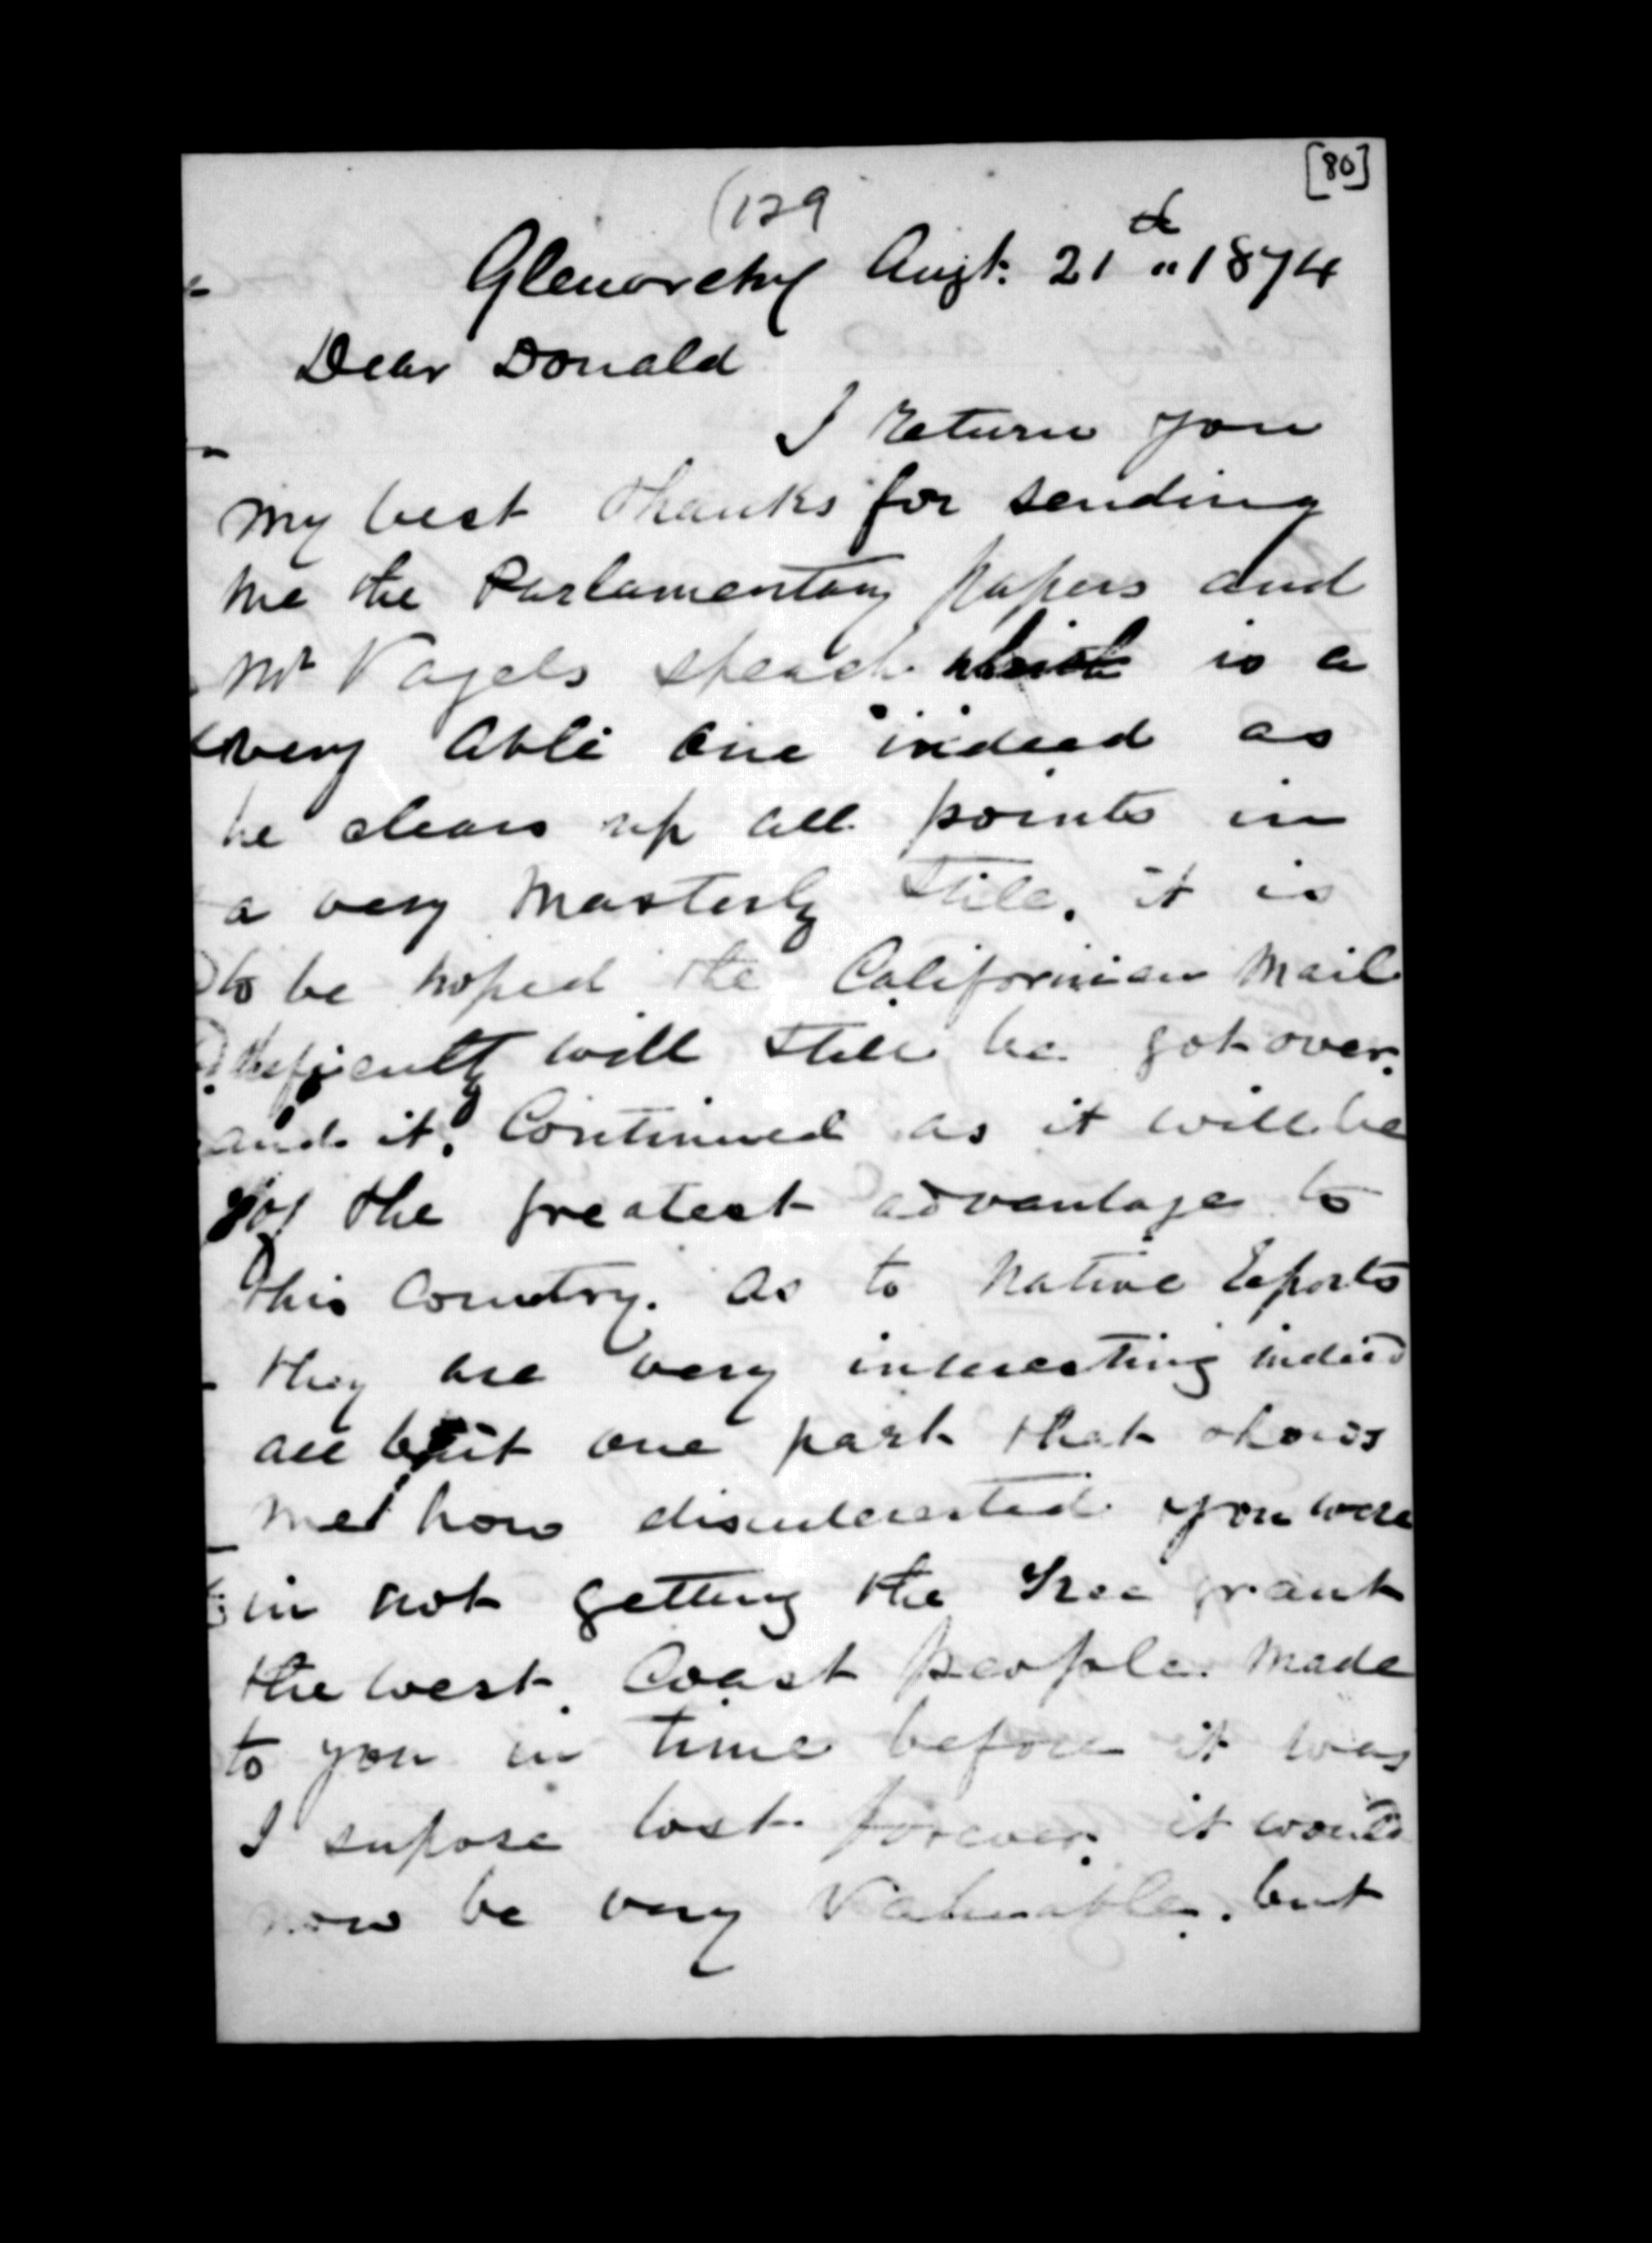 [80]
(129
Glenorchy Augt. 21th "1874
Dear Donald
I return you
my best thanks for sending
me the Parlamentary papers and
Mr Vogels speach which is a
very able one indeed as
he clears up all points in
a very masterly stile. it is
to be hoped the Californian Mail
will still be got over.
and it. Continued as it will be
of the greatest advantage to
this Country. as to native
they are very interesting indeed
all but one part that shows
me how disinterested you were
in not getting the Free grant
the west Coast people. made
to you in time before it was
I supose lost forever. it would
now be very Valuable. but